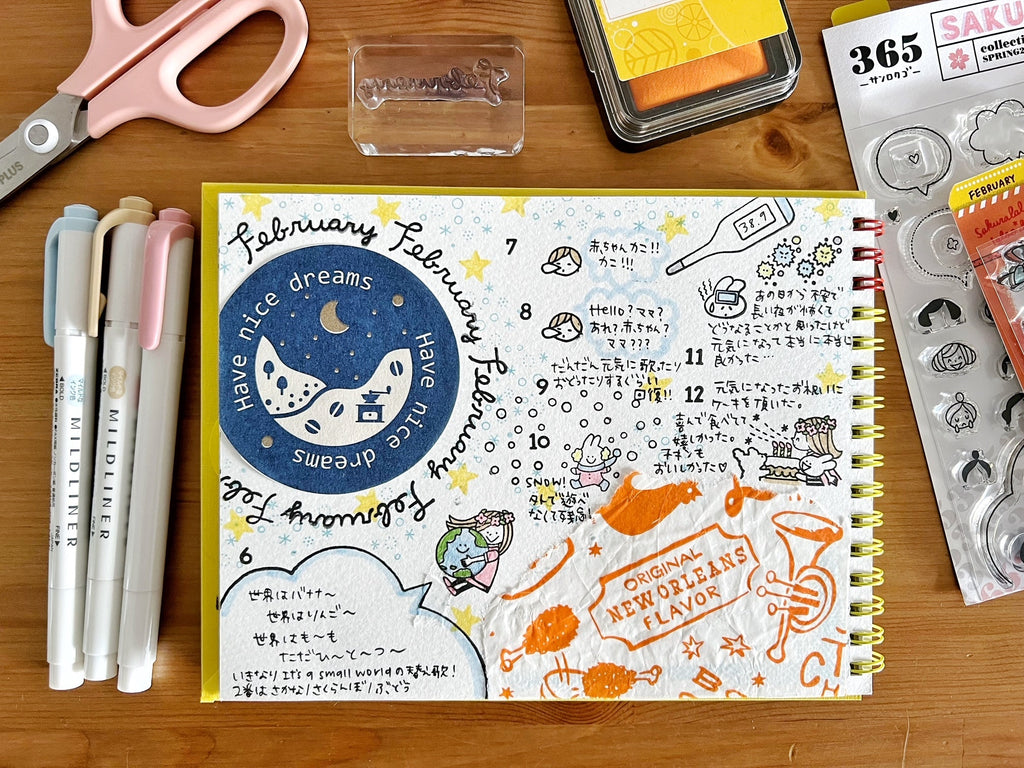 PLUS
February
365
サンロクゴ
SAKU
collecti
SPRING2
FEBRUARY
Sakurala
MILDLINER
MILDLINER
MILDLINER
BOLD
BOLD
FINE
FINE
February February February February Feb
Have nice dreams
Have nice dreams
6
世界はバナナ〜
世界はりんご〜
世界はも〜も
ただひ〜と〜つ〜
いきなり It's a small worldの替え歌!
2番は さかな/さくらんぼ/ぶどう
7
赤ちゃんカこ!!
カこ!!!
38.9
8
Hello? ママ?
あれ?赤ちゃん?
ママ???
だんだん元気に歌ったり
9
おどったりするぐらい
回復!!
10
SNOW!
外で遊べ
なくて残念!
あの日から不安で
長い夜が怖くて
どうなることかと思ったけど
11
元気になって本当に本当に
良かった…
12
元気になったお祝いに
ケーキを頂いた。
喜んで食べてて
嬉しかった。
おいしかった♡
ORIGINAL
NEW ORLEANS
FLAVOR